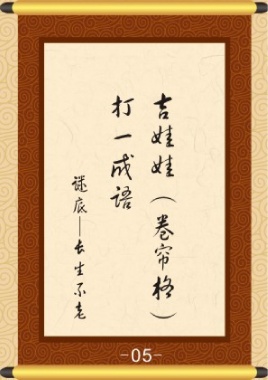 吉娃娃（卷帘格）
打一成语
谜底——长生不老
-05-